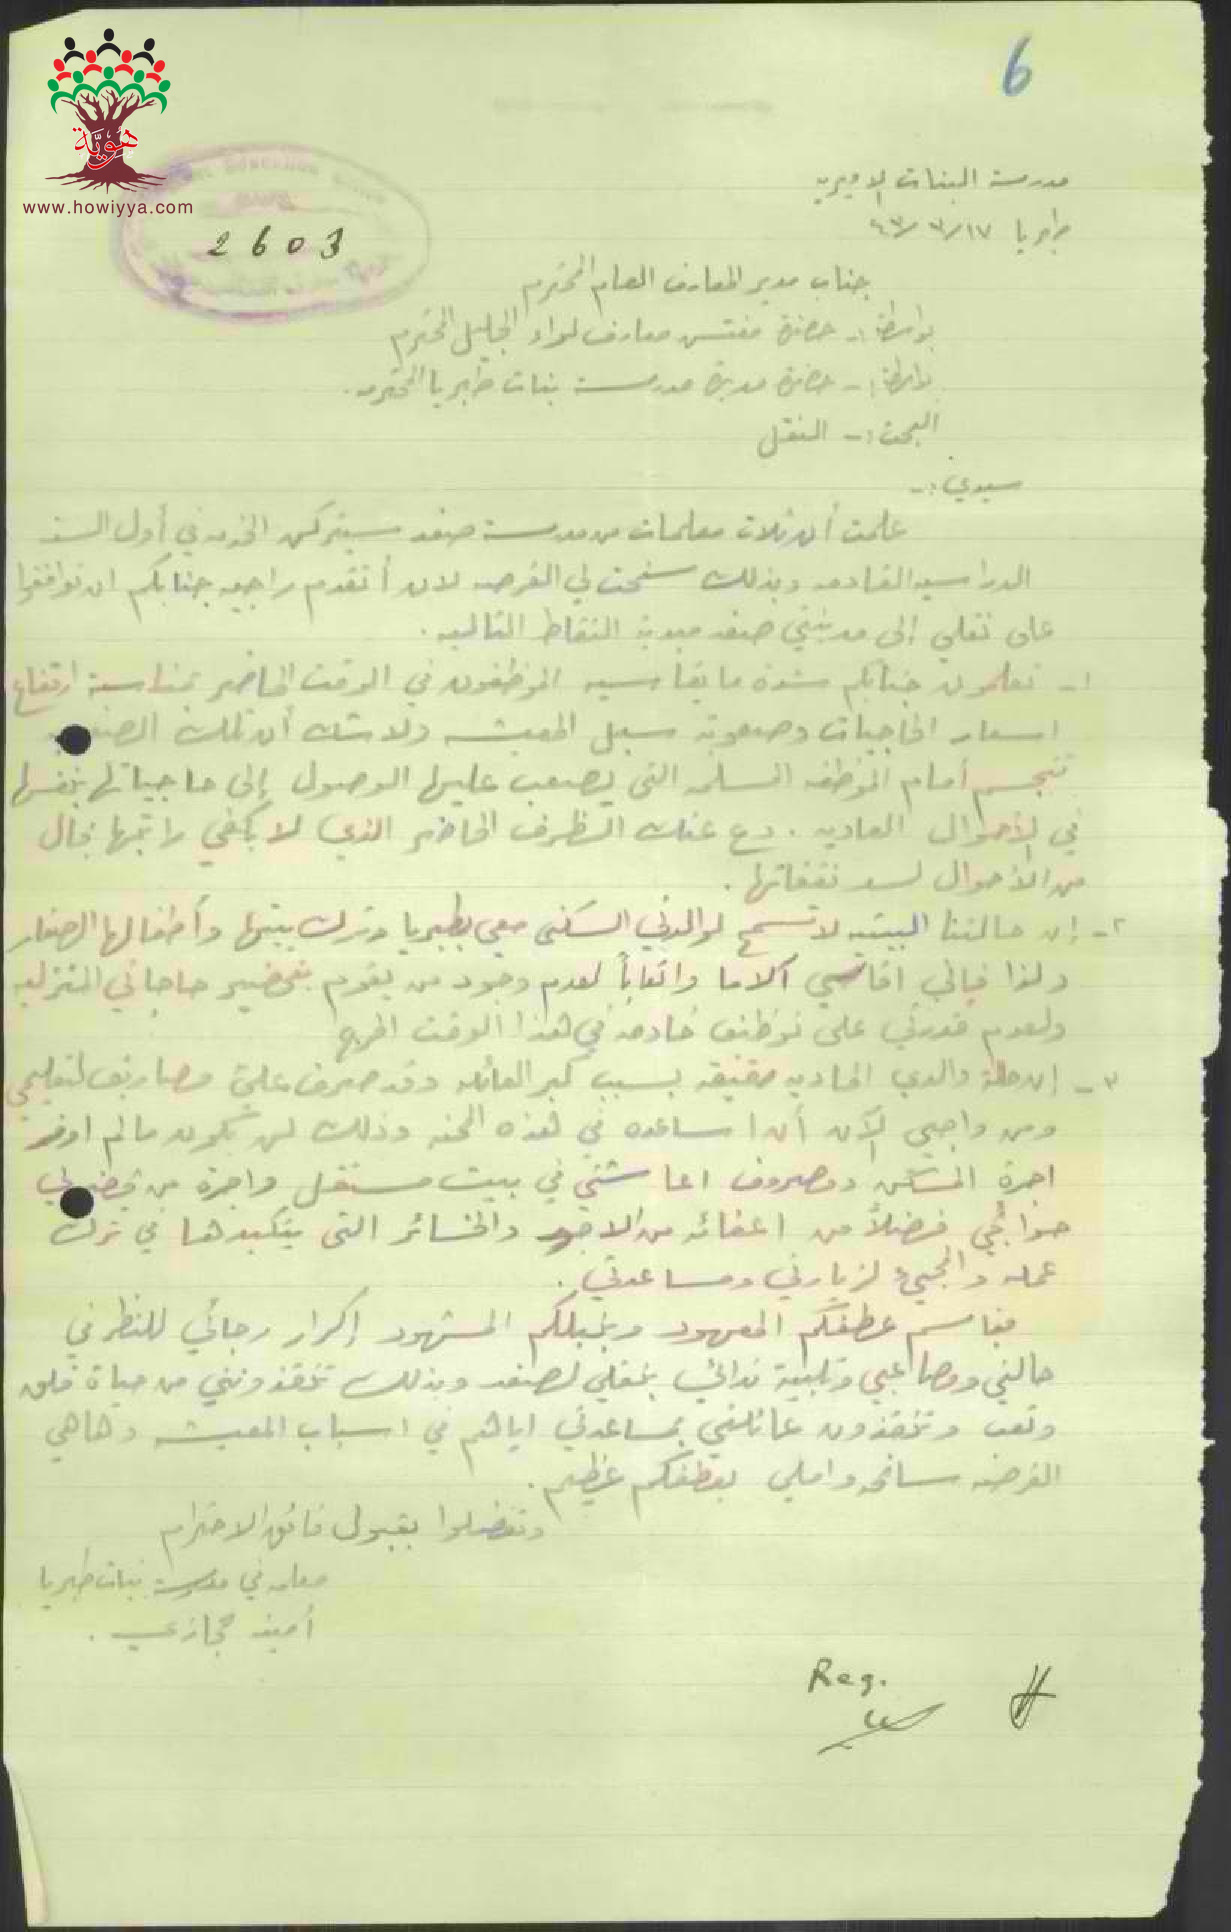 6
هوية
www.howiyya.com
2603
مدرسة البنات الاميريه
طبريا ١٧/٣/٤٣
جناب مدير المعارف العام المحترم
بواسطة :- حضرة مفتش معارف لواء الجليل المحترم
بواسطة :- حضرة مديرة مدرسة بنات طبريا المحترمه .
البحث :- النقل
سيدي :-
علمت أن ثلاث معلمات من مدرسة صفد سيتركن الخدمه في أول السنه
الدراسيه القادمه وبذلك سنحت لي الفرصه لان أتقدم راجيه جنابكم ان توافقوا
على نقلي إلى مدينتي صفد مبدية النقاط التاليه .
١- تعلمون جنابكم شدة ما يقاسيه الموظفون في الوقت الحاضر بمناسبة ارتفاع
اسعار الحاجيات وصعوبة سبل المعيشه ولا شك أن تلك
تتجسم أمام الموظفه المسلمه التي يصعب عليها الوصول إلى حاجياتها بنفسها
في الأحوال العاديه . دع عنك الظرف الحاضر الذي لا يكفي راتبها بحال
من الأحوال لسد نفقاتها .
٢- إن حالتنا البيتيه لا تسمح لوالدتي السكنى معي بطبريا وترك بيتها وأطفالها الصغار
ولذا فإني اقاسي آلاما واتعاباً لعدم وجود من يقوم بتحضير حاجاتي المنزليه
ولعدم قدرتي على توظيف خادمه في هذا الوقت الحرج
٣- إن حالة والدي الماديه ضيقه بسبب كبر العائله وقد صرف علي مصاريف لتعليمي
ومن واجبي الآن أن اساعده في هذه المحنه وذلك لن يكون ما لم اوفر
اجرة المسكن ومصروف اعاشتي في بيت مستقل واجرة من لي
حوائجي فضلاً من اعفائه من الاجور والخسائر التي يتكبدها في ترك
عمله والمجيء لزيارتي ومساعدتي .
فباسم عطفكم المعهود وبنبلكم المشهود اكرار رجائي للنظر في
حالتي ومصاعبي وتلبية ندائي بنقلي لصفد وبذلك تنقذونني من حياة قلق
وتعب وتنقذون عائلتي بمساعدتي اياهم في اسباب المعيشه وها هي
الفرصه سانحه واملي بعطفكم عظيم .
وتفضلوا بقبول فائق الاحترام
معلمه في مدرسة بنات طبريا
أمينه حجازي .
Reg.